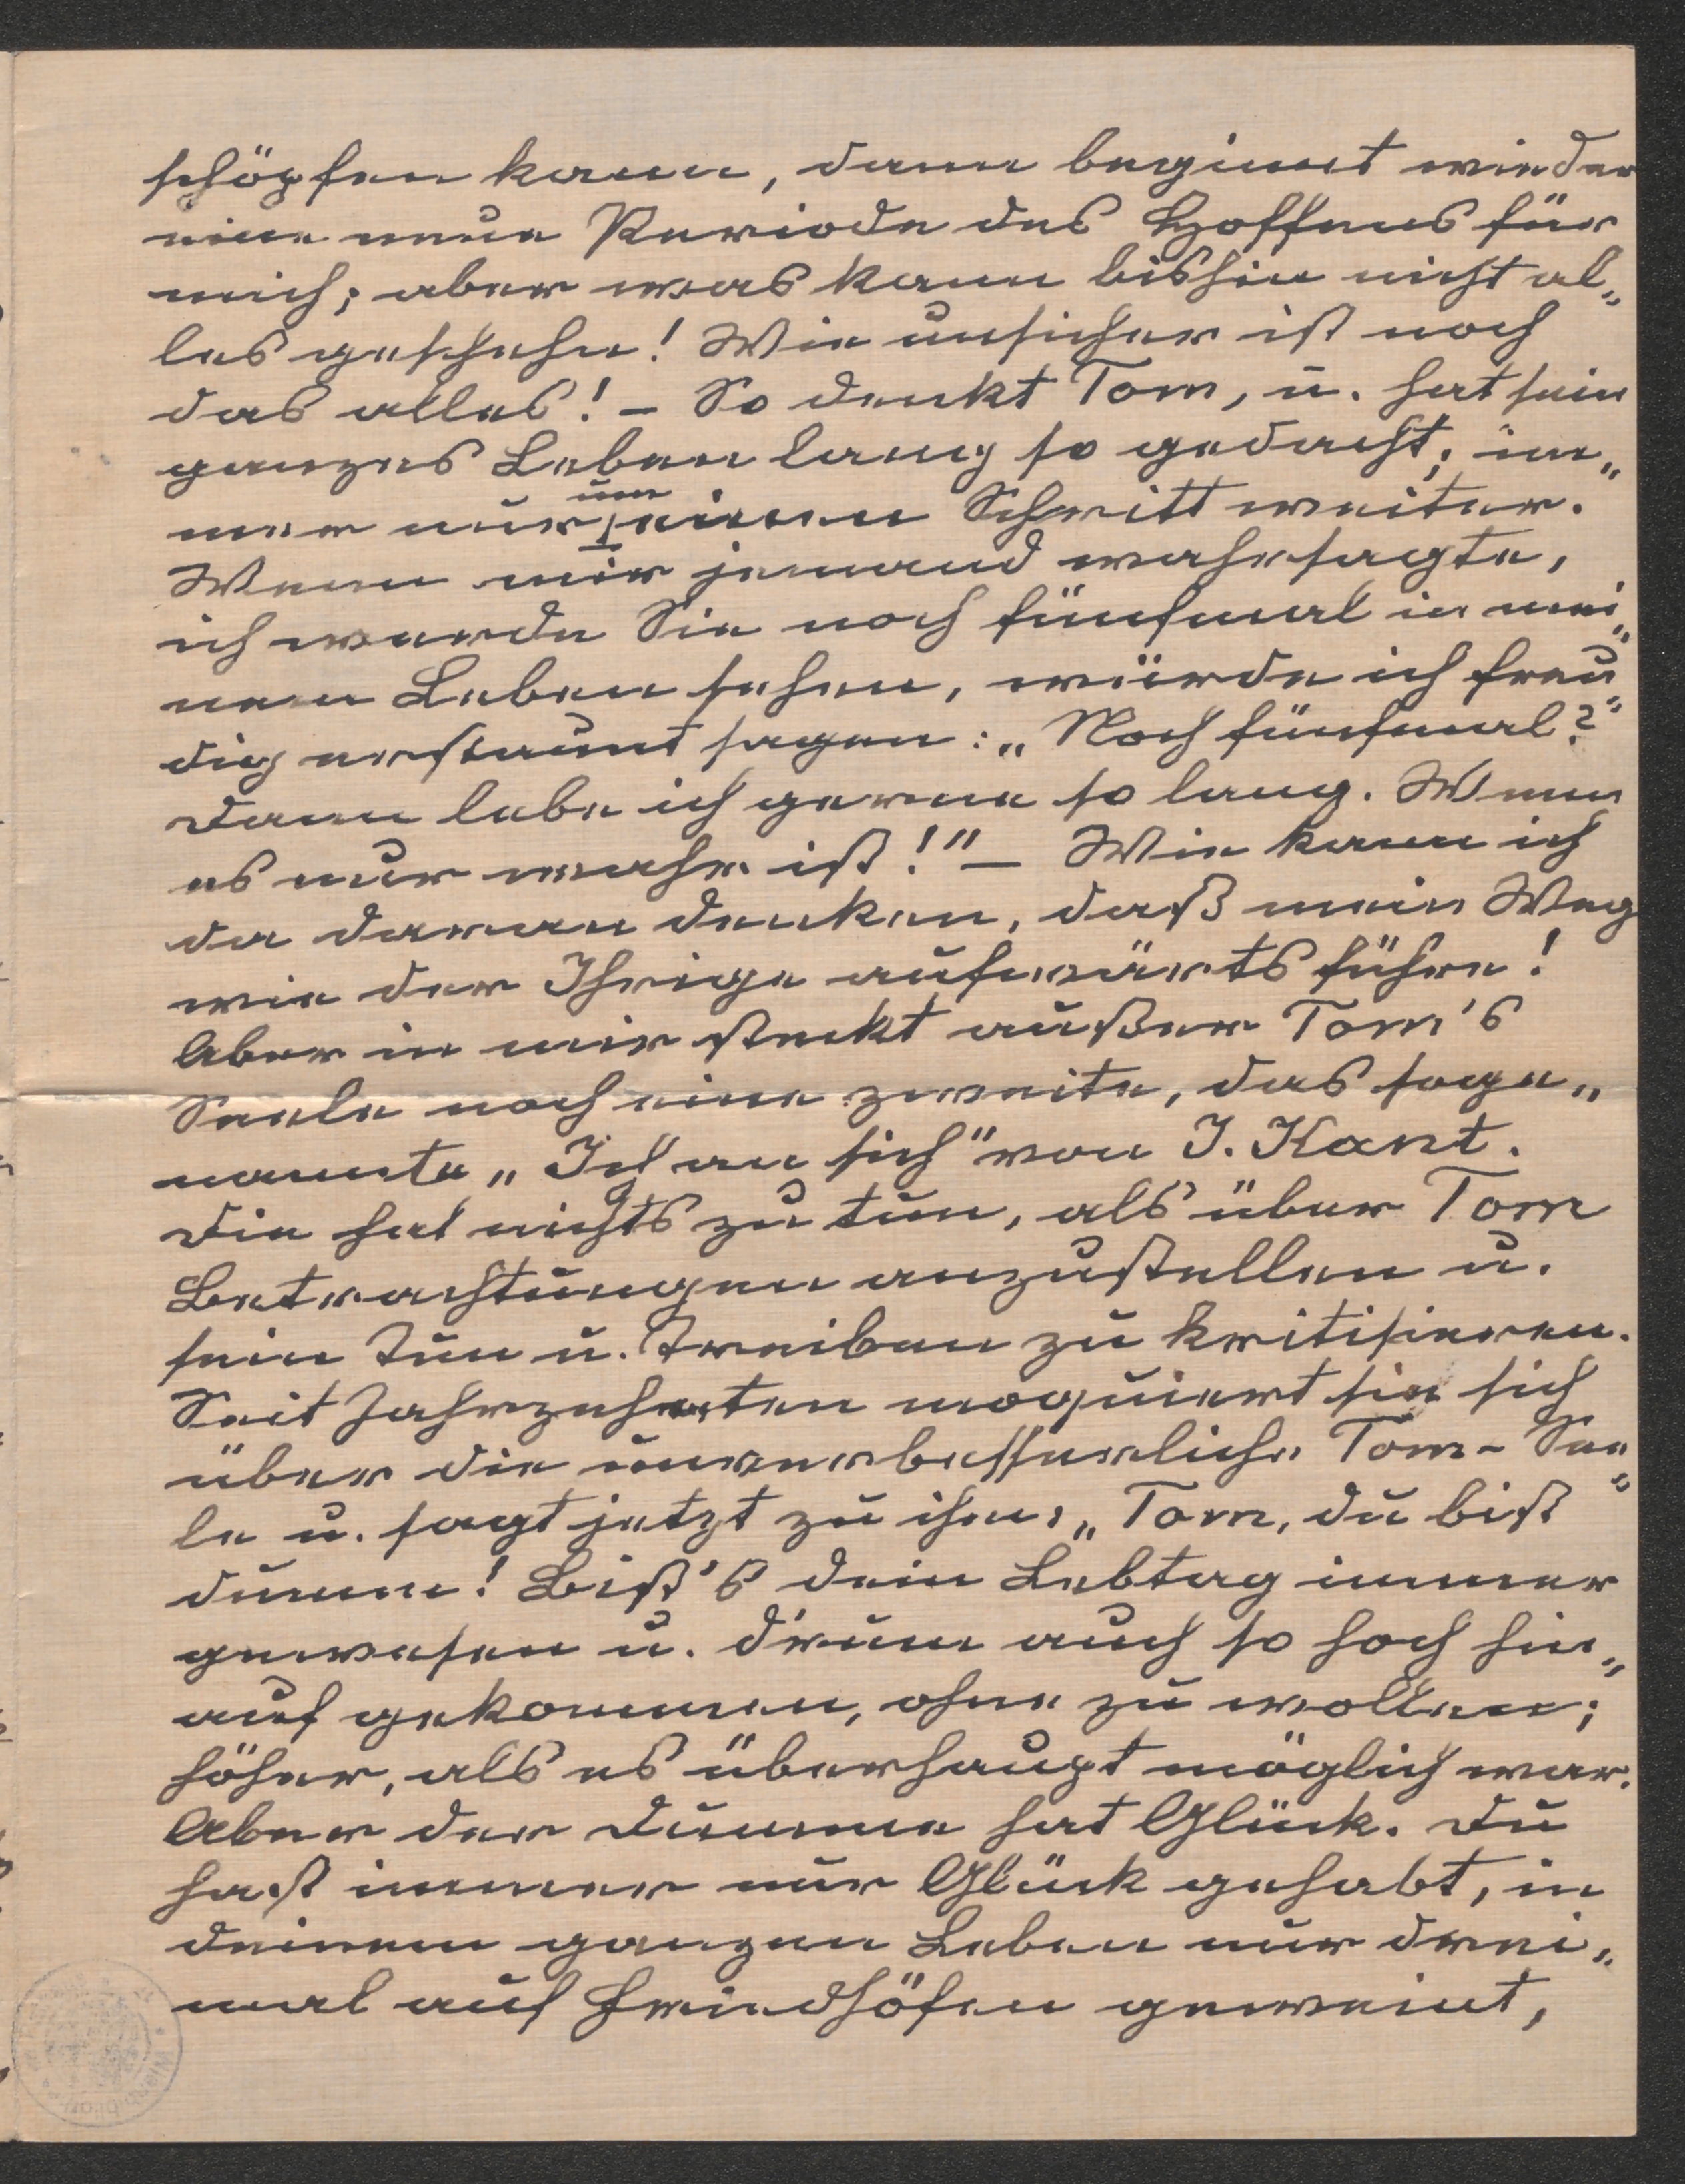 schöpfen kann, dann beginnt wieder
eine neue Periode des Hoffens für
mich; aber was kann bishin nicht al„
les geschehn! Wie unsicher ist noch
das alles! – So denkt Tom, u. hat sein
ganzes Leben lang so gedacht; im„
mer nur um einen Schritt weiter."
Wenn mir jemand wahrsagte,
ich werde Sie noch fünfmal in mei„
nem Leben sehen, würde ich freu„
dig erstaunt sagen: „Noch fünfmal?
Dann lebe ich gerne so lang. Wenn
es nur wahr ist!" – Wie kann ich
da daran denken, daß mein Weg
wie der Ihrige aufwärts führe!
Aber in mir steckt außer Tom's
Seele noch eine zweite, das soge„
nannte „Ich an sich" von I. Kant.
Die hat nichts zu tun, als über Tom
Betrachtungen anzustellen u.
sein Tun u. Treiben zu kritisieren.
Seit Jahrzehnten moquiert sie sich
über die unverbesserliche Tom-See„
le u. sagt jetzt zu ihm: „Tom, du bist
dumm! Bist's dein Lebtag immer
gewesen u. d'rum auch so hoch hin„
auf gekommen, ohne zu wollen;
höher, als es überhaupt möglich war.
Aber der Dumme hat Glück. Du
hast immer nur Glück gehabt, in
deinem ganzen Leben nur drei„
mal auf Friedhöfen geweint,